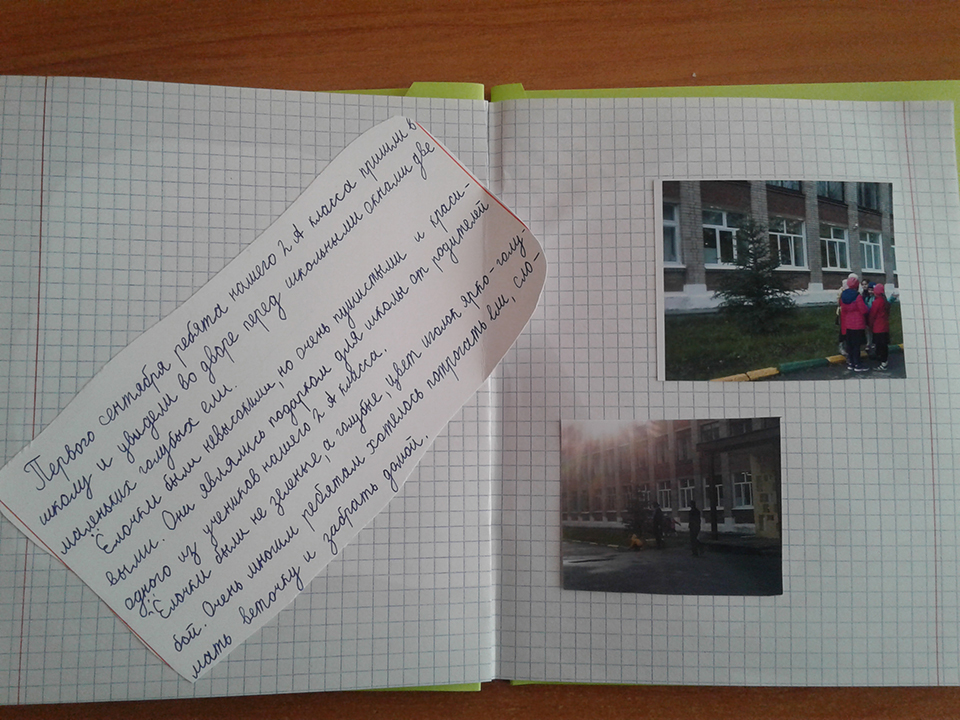 Первого сентября ребята нашего 2 А класса пришли в
школу и увидели во дворе перед школьными окнами две
маленьких голубых ели.
Ёлочки были невысокими, но очень пушистыми и краси-
выми. Они являлись подарком для школы от родителей
одного из учеников нашего 2 А класса.
Ёлочки были не зелёные, а голубые, цвет иголок ярко-голу-
бой. Очень многим ребятам хотелось потрогать ели, сло-
мать веточку и забрать домой.